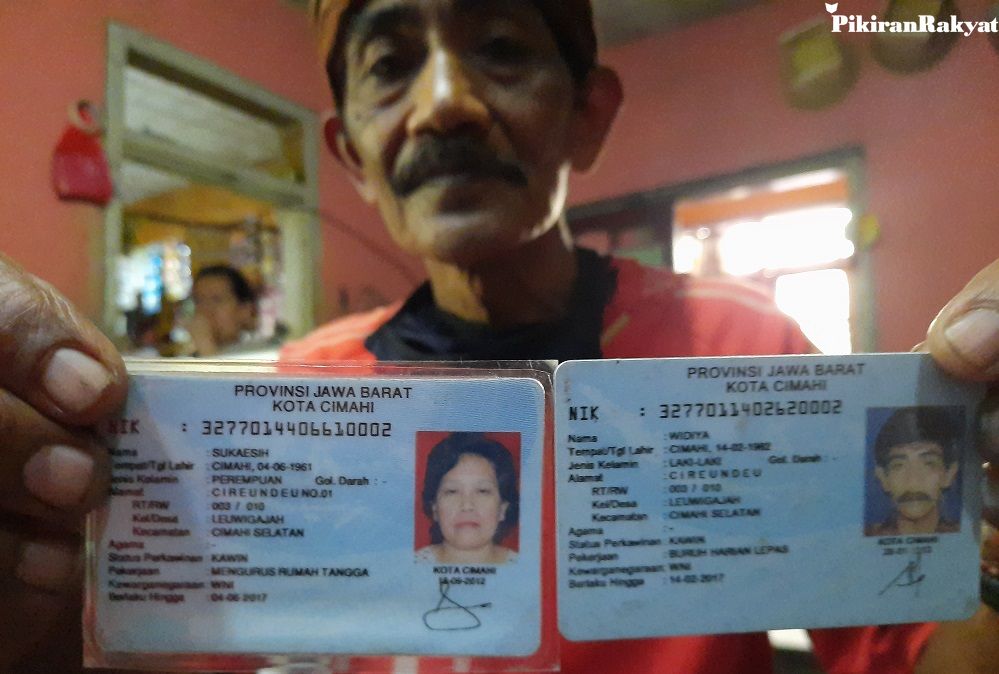 PikiranRakyat
PROVINSI JAWA BARAT
KOTA CIMAHI
NIK : 3277014406610002
Nama : SUKAESIH
Tempat/Tgl Lahir : CIMAHI, 04-06-1961
Jenis Kelamin : PEREMPUAN Gol. Darah : -
Alamat : CIREUNDEU NO.01
RT/RW : 003 / 010
Kel/Desa : LEUWIGAJAH
Kecamatan : CIMAHI SELATAN
Agama : -
Status Perkawinan : KAWIN
Pekerjaan : MENGURUS RUMAH TANGGA
Kewarganegaraan : WNI
Berlaku Hingga : 04-06-2017
KOTA CIMAHI
PROVINSI JAWA BARAT
KOTA CIMAHI
NIK : 3277011402620002
Nama : WIDIYA
Tempat/Tgl Lahir : CIMAHI, 14-02-1962
Jenis Kelamin : LAKI-LAKI Gol. Darah : -
Alamat : CIREUNDEU
RT/RW : 003 / 010
Kel/Desa : LEUWIGAJAH
Kecamatan : CIMAHI SELATAN
Agama : -
Status Perkawinan : KAWIN
Pekerjaan : BURUH HARIAN LEPAS
Kewarganegaraan : WNI
Berlaku Hingga : 14-02-2017
KOTA CIMAHI